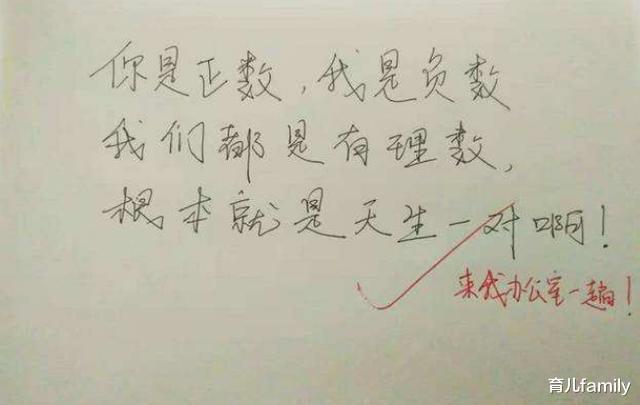 你是正数，我是负数
我们都是有理数，
根本就是天生一对啊！
来我办公室一趟！
育儿family